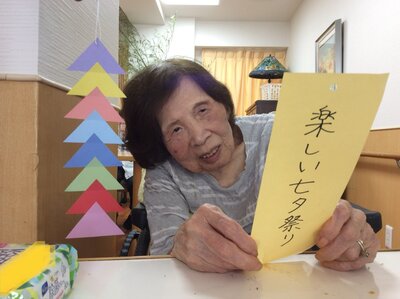 楽しい七夕祭り